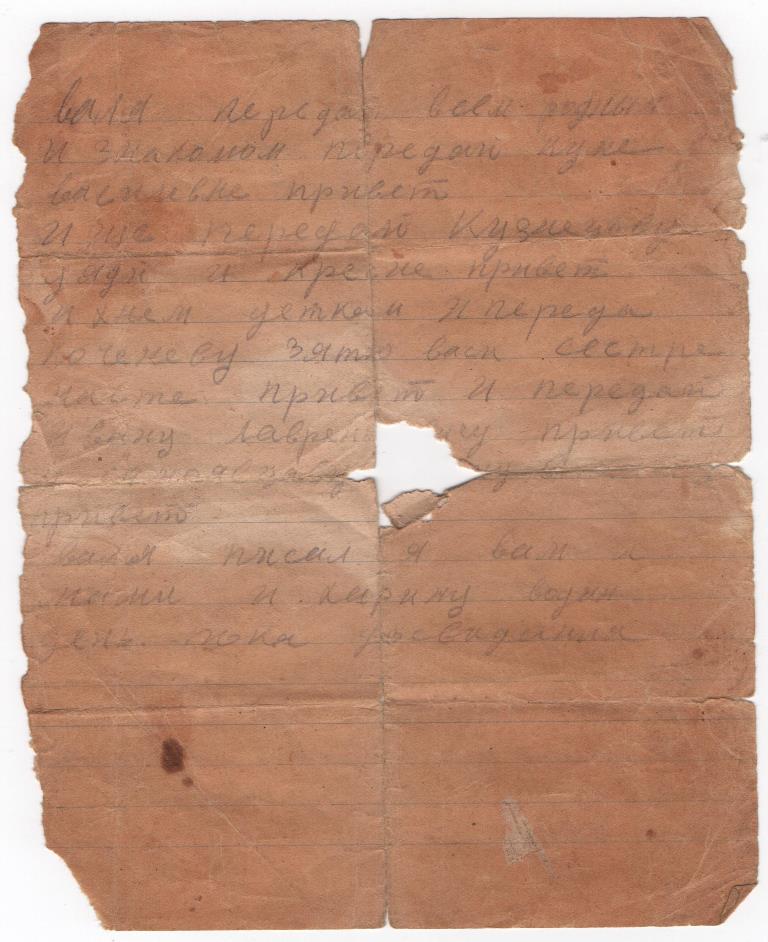 валя передай всем родным
и знаком передай
василевне привет
и еще передай Кузнецову
дяди и кресне привет
ихнем деткам и переда
коченеву зятю васи сестре
насте привет и передай
ивану лаврен чу привет
привет
валя писал я вам и
мами и харину водин
день пока досвидания